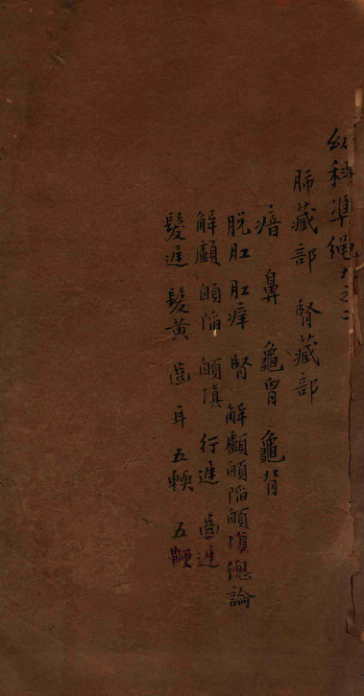 幼科準繩九之二
肺藏部 腎藏部
瘖 鼻 龜胷 龜背
脫肛 肛痒 腎 解顱顖陷顖填總論
解顱 顖陷 顖填 行遲 齒遲
髮遲 髮黃 齒 耳 五軟 五鞕